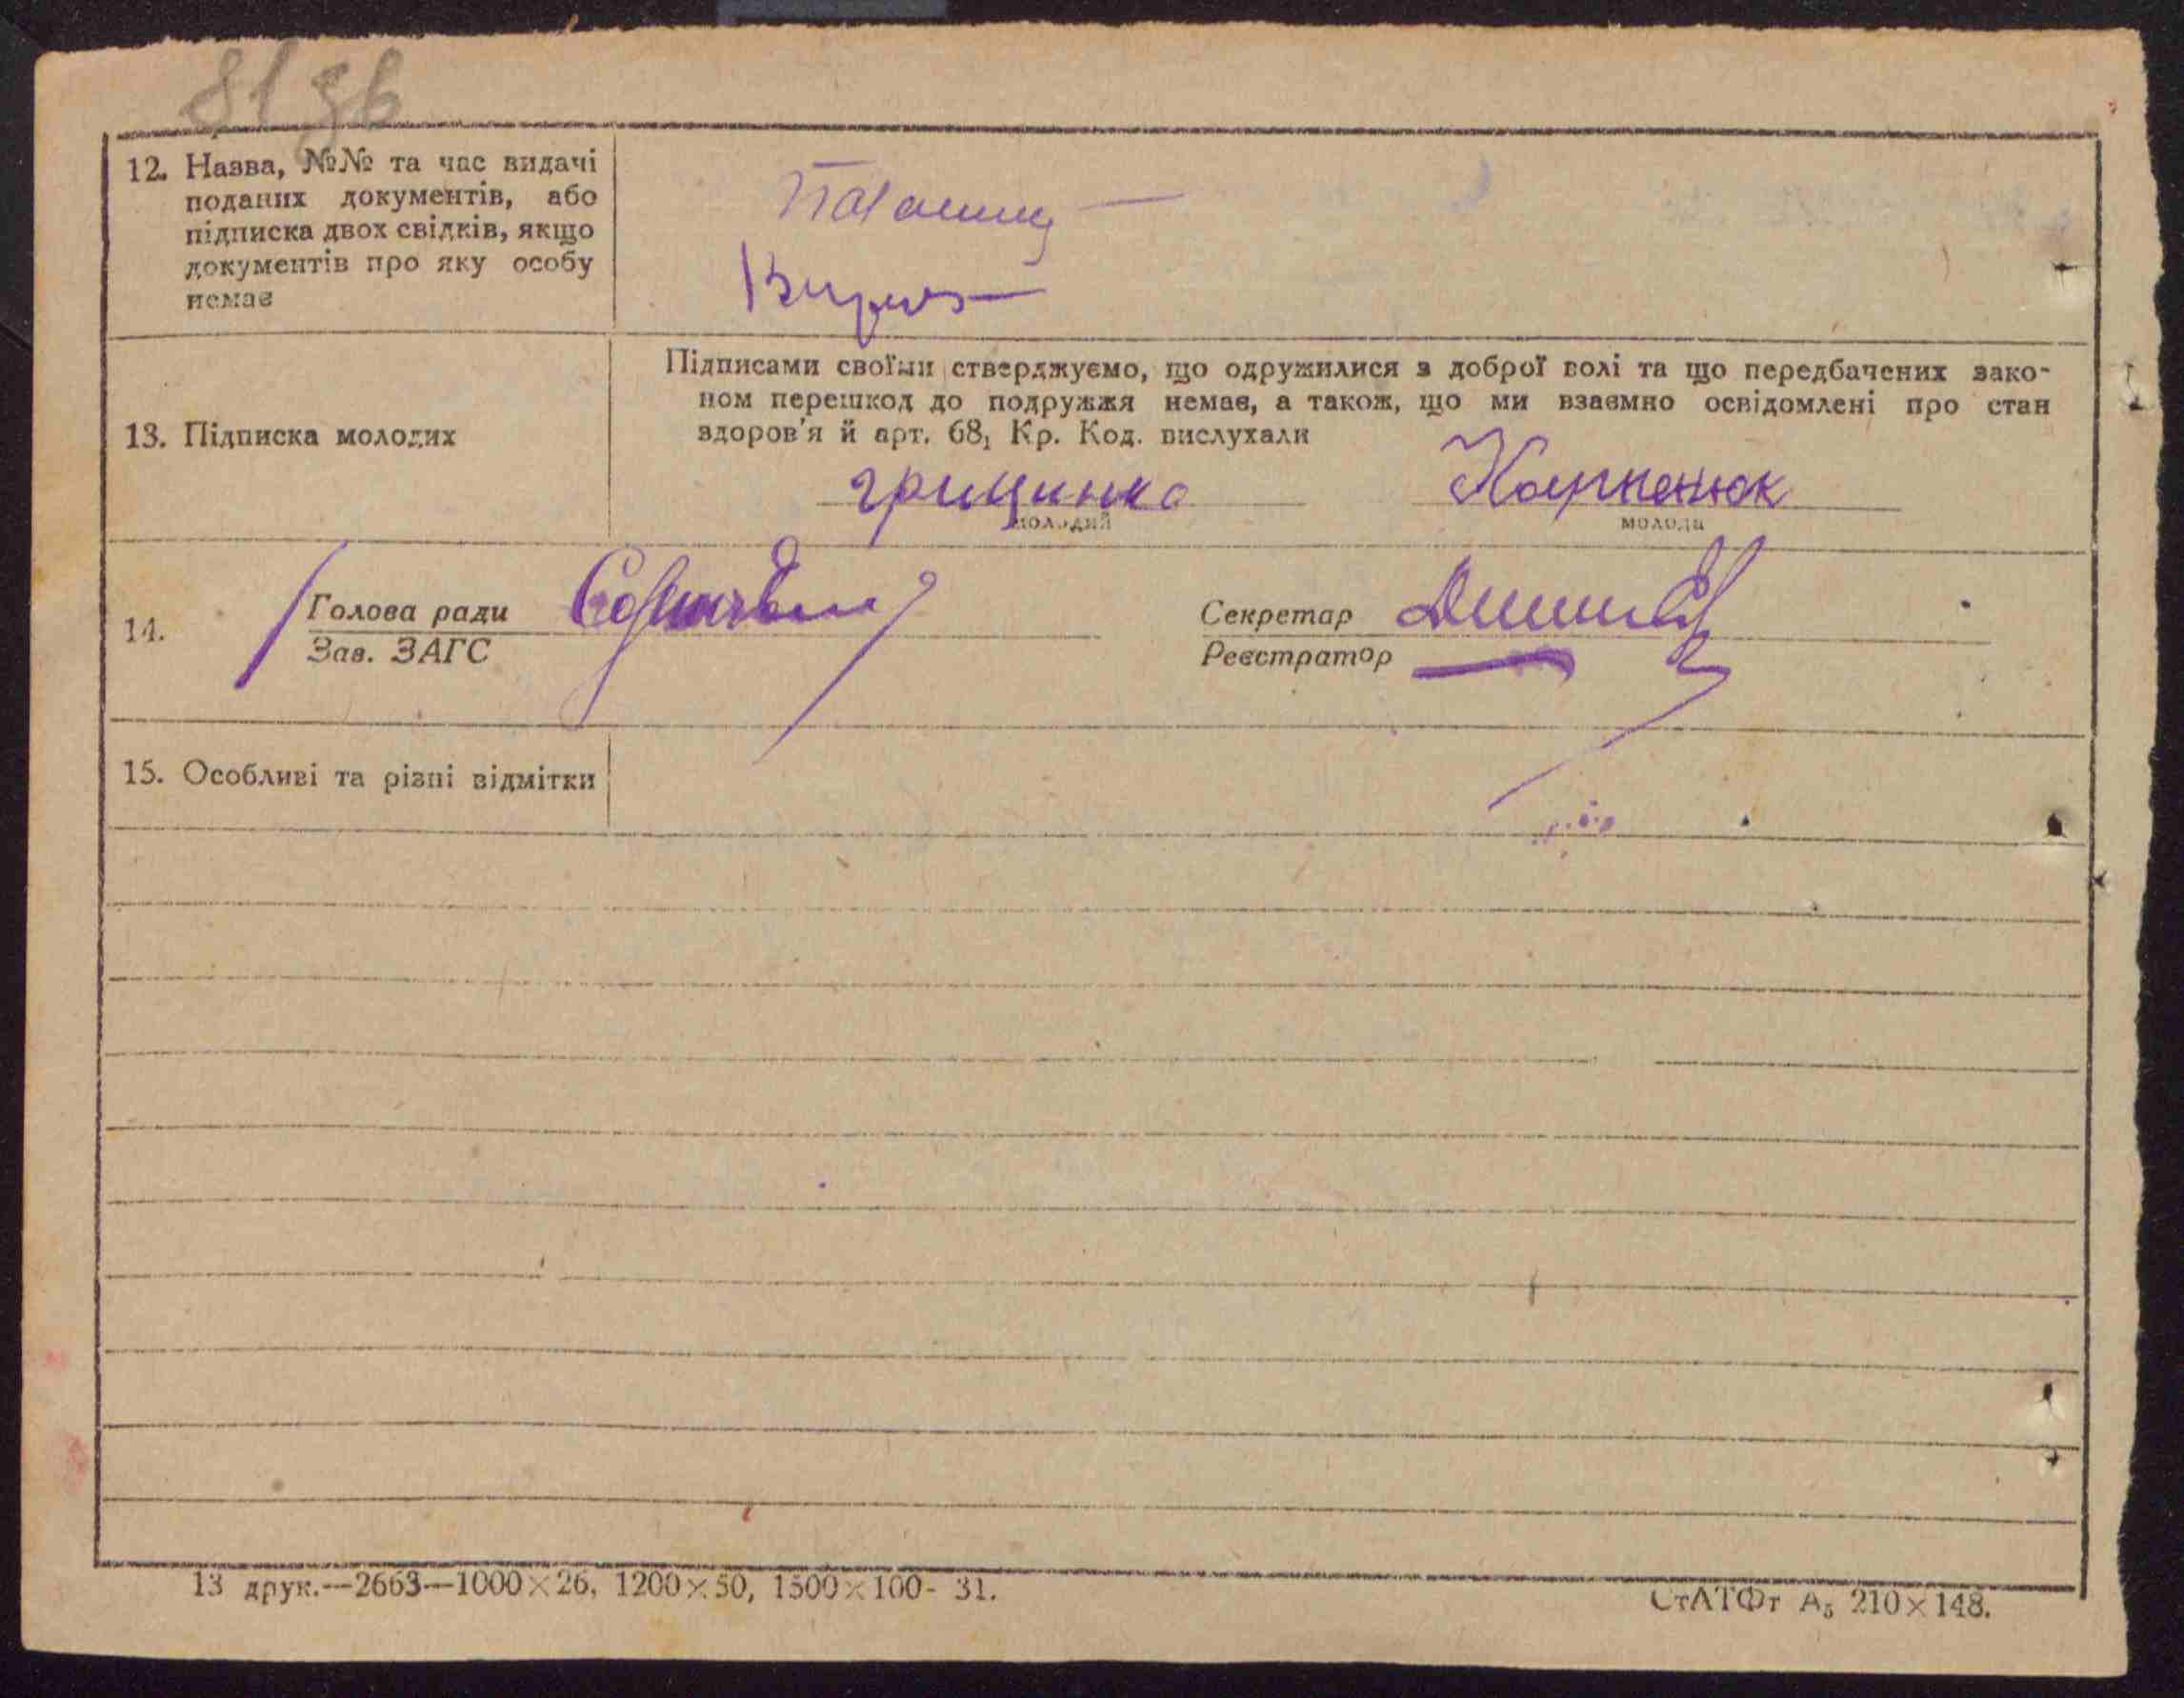 81 зв
12. Назва, №№ та час видачі
поданих документів, або
підписка двох свідків, якщо
документів про яку особу
немає
13. Підписка молодих
Підписами своїми стверджуємо, що одружилися з доброї волі та що передбачених зако-
ном перешкод до подружжя немає, а також, що ми взаємно освідомлені про стан
здоров'я й арт. 68₁ Кр. Код. вислухали
грищинко Карпенюк
молодий молода
14. Голова ради Секретар
Зав. ЗАГС Реєстратор
15. Особливі та різні відмітки
13 друк.—2663—1000×26, 1200×50, 1500×100- 31.
СтАТФт А₅ 210×148.